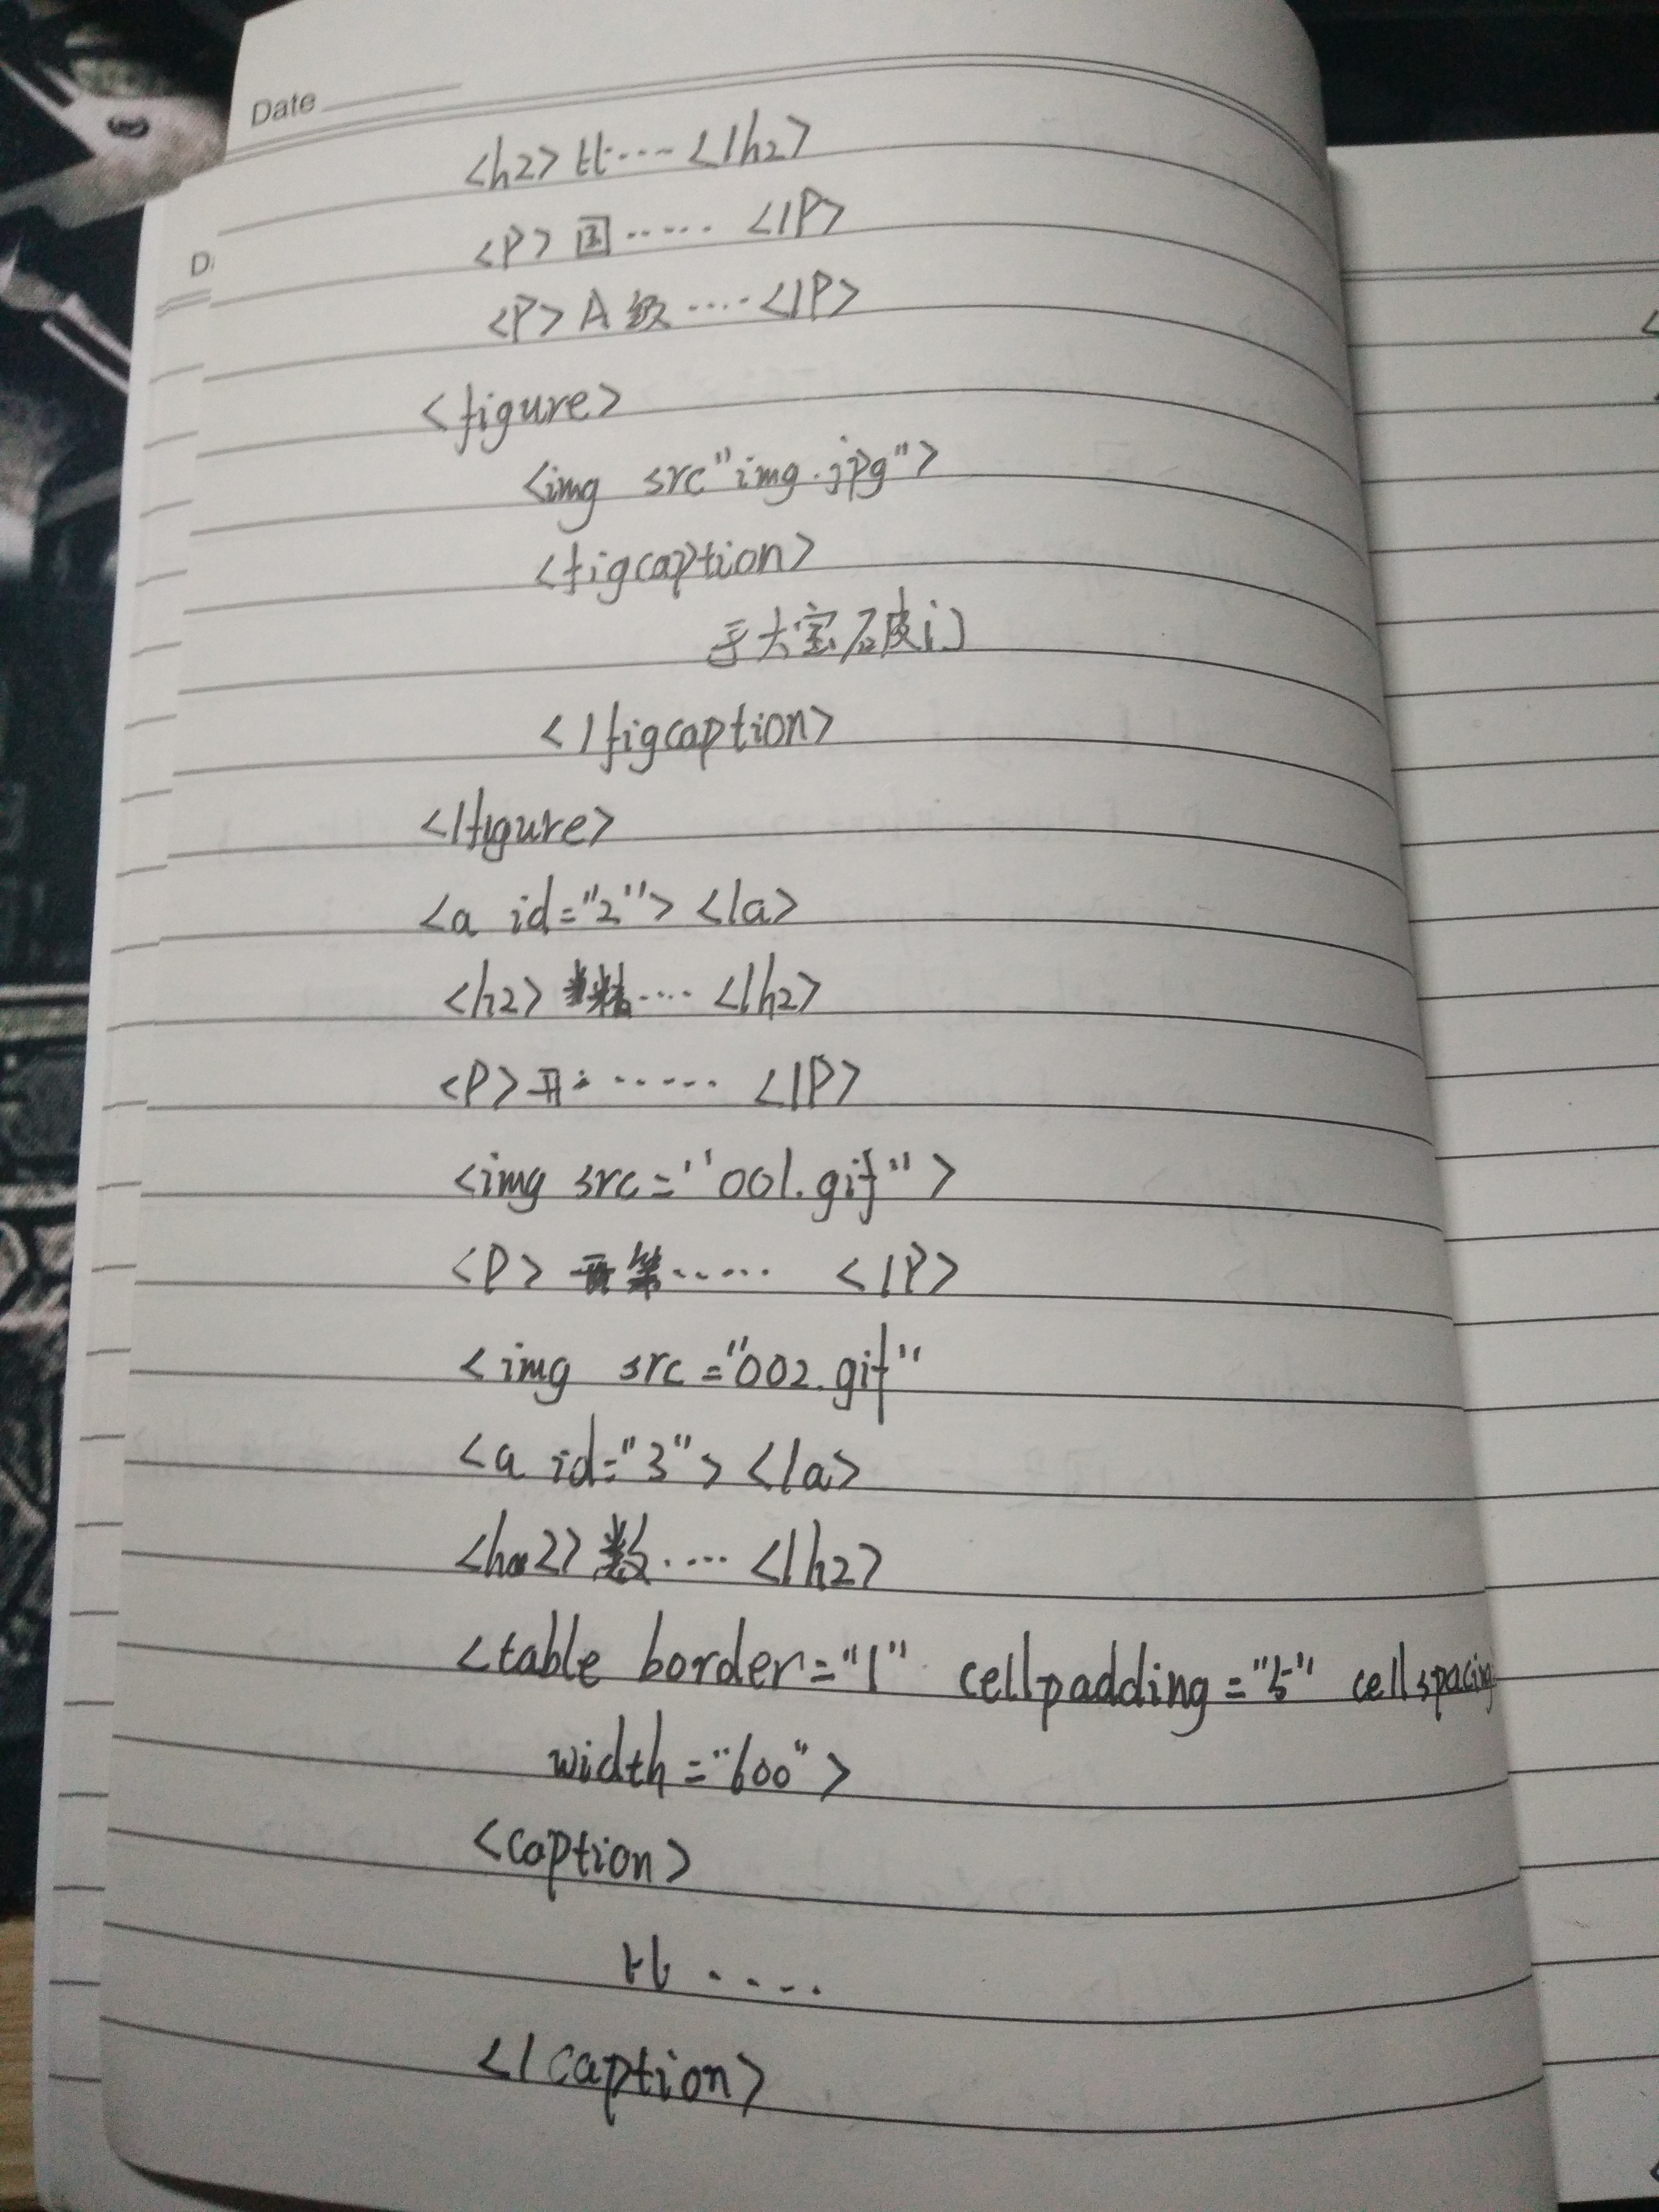 Date
<h2> 比···· </h2>
<P> 国······ </P>
<P> A 级 ····· </P>
<figure>
<img src"img.jpg">
<figcaption>
大宝石皮门
</figcaption>
</figure>
<a id="2"> </a>
<h2> ···· </h2>
<P> 开 ······ </P>
<img src="001.gif">
<P> 第······ </P>
<img src="002.gif"
<a id="3"> </a>
<h2> 数····· </h2>
<table border="1" cellpadding="5" cellspacing
width="600">
<caption>
比 ····
</caption>